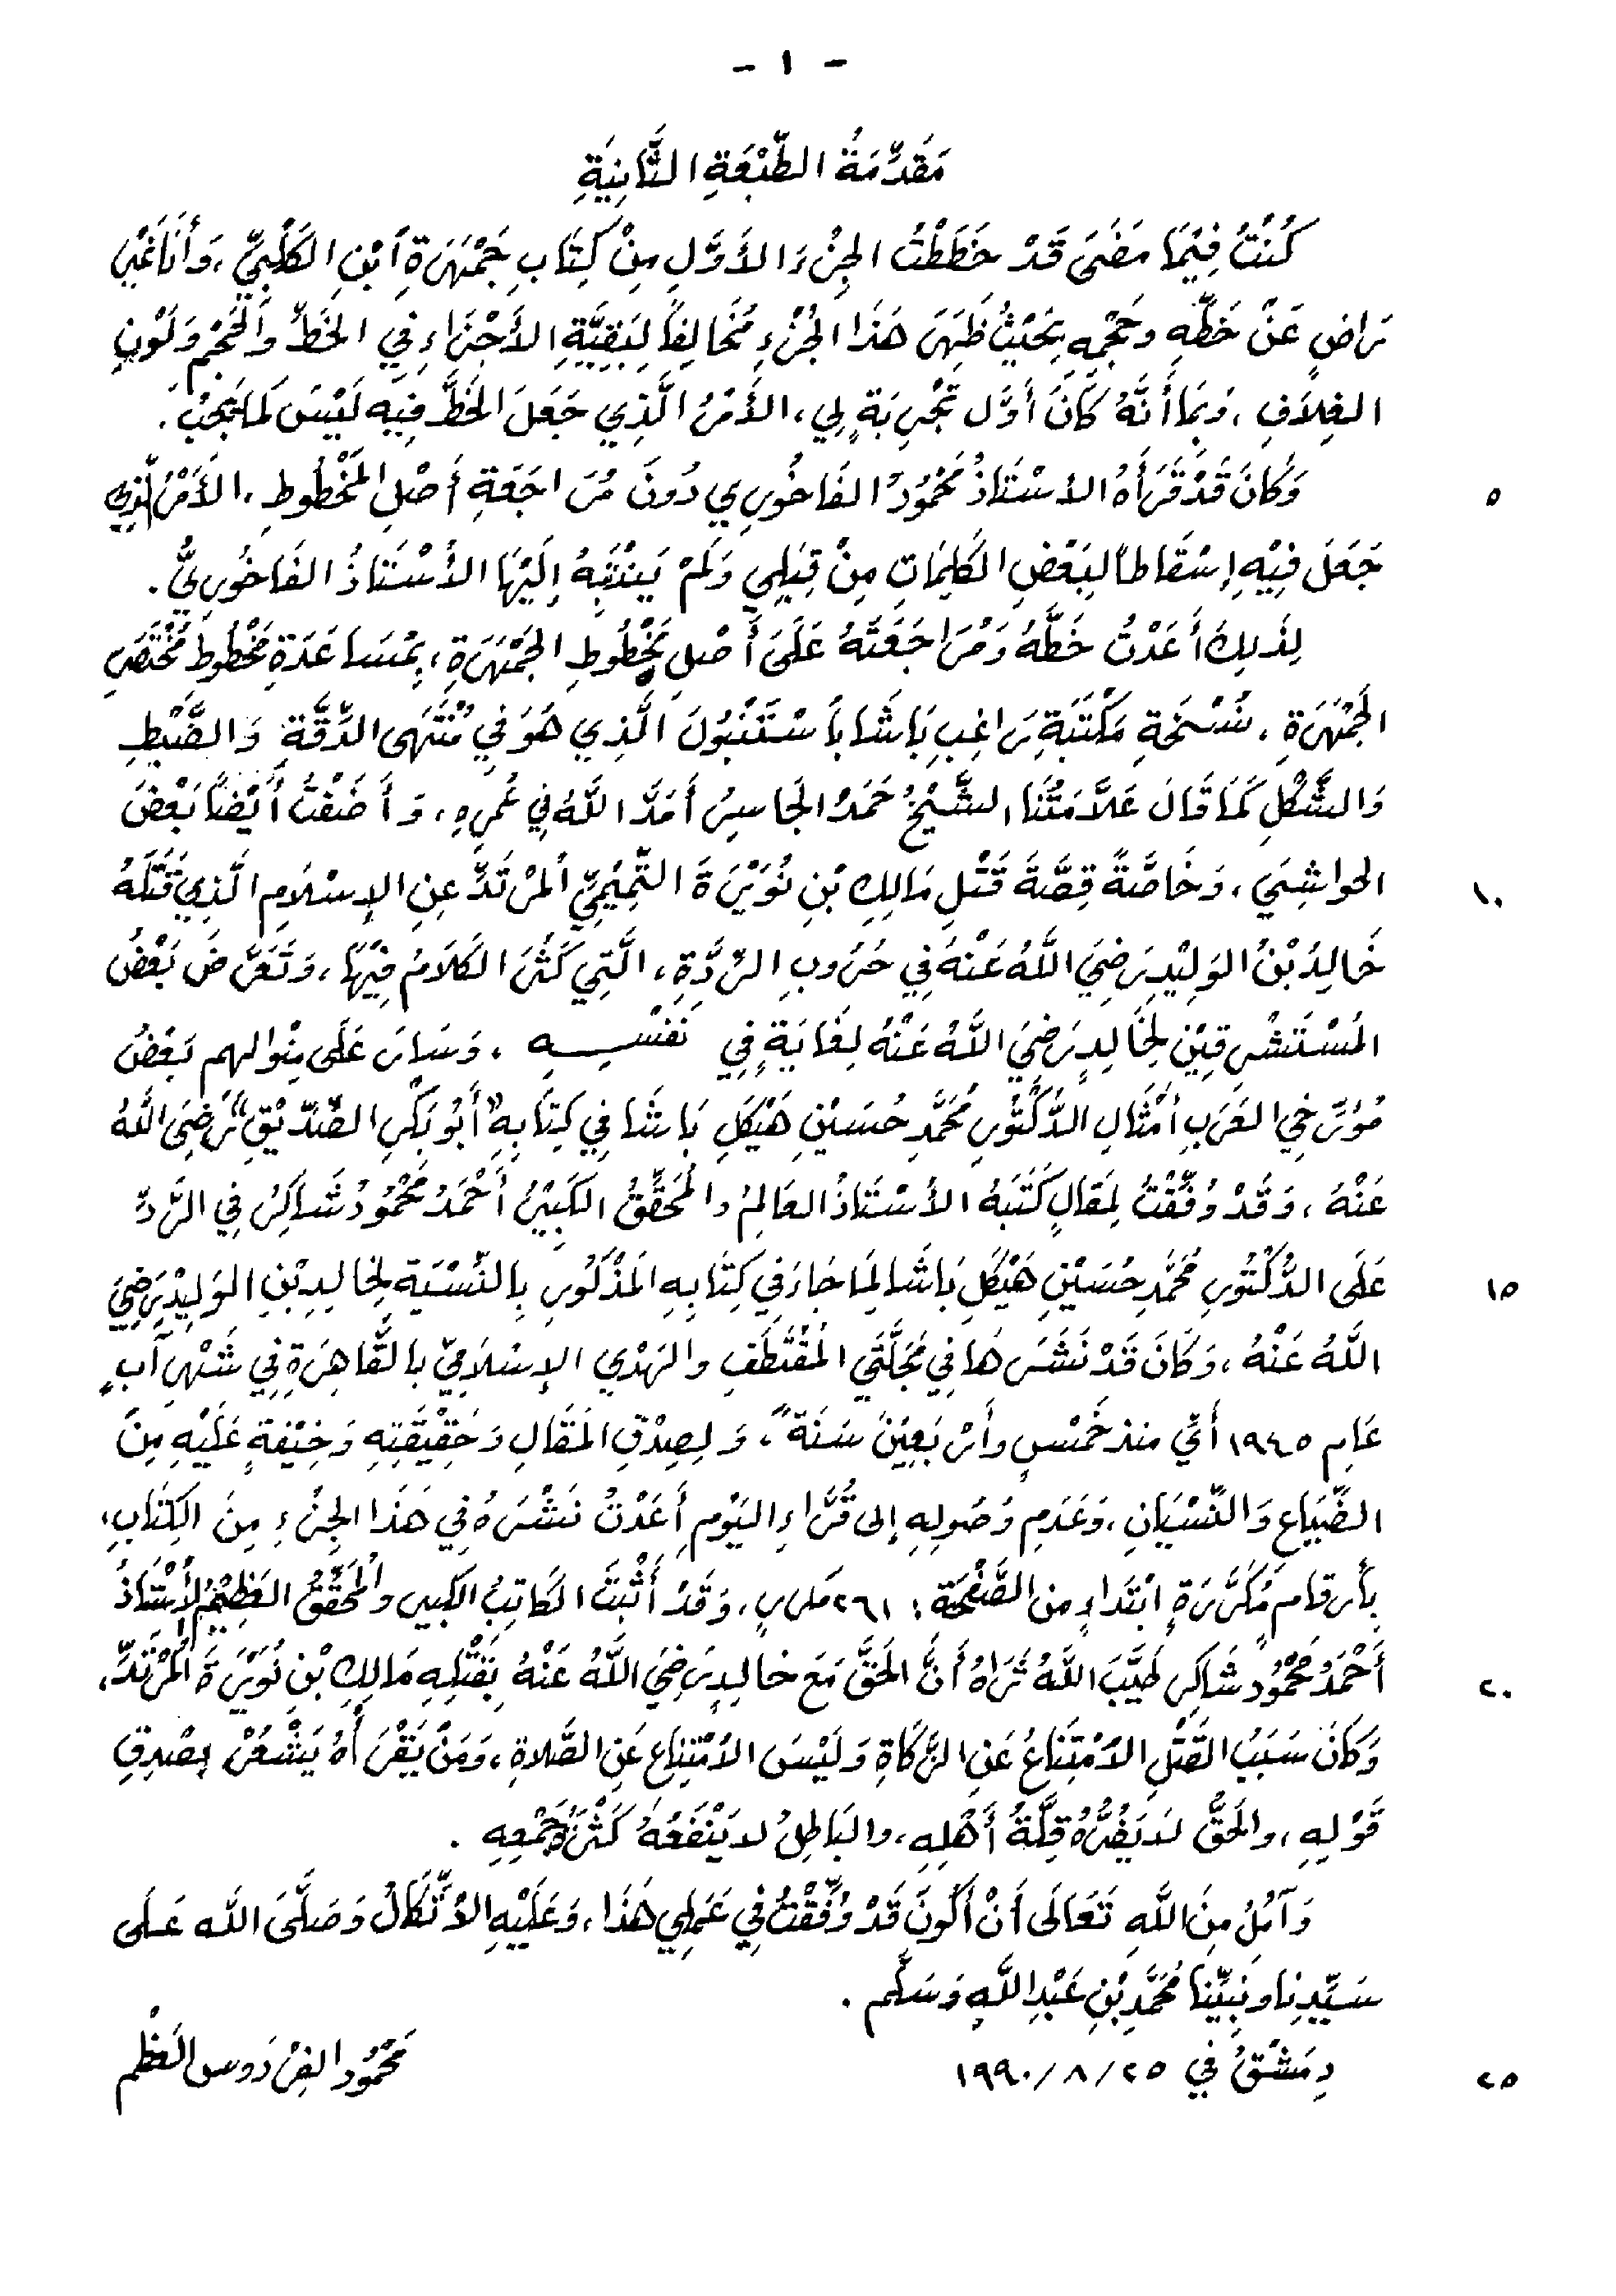 - ١ -
مَقَدِّمَةُ الطَّبْعَةِ الثَّانِيَةِ
كُنْتُ فِيْمَا مَضَى قَدْ خَطَطْتُ الجِزْءَ الأَوَّلِ مِنْ كِتَابِ جَمْهَرَةِ ابْنِ الكَلْبِيِّ ، وَأَنَا غَيْرَ
رَاضٍ عَنْ خَطِّهِ وحَجْمِهِ بِحَيْثُ ظَهَرَ هَذَا الجُزْءِ مُخَالِفاً لِبَقِيَّةِ الأَجْزَاءِ فِي الخَطِّ والحَجْمِ وَلَوْنِ
الغِلاَفِ ، وَبمَا أَنَّهُ كَانَ أَوَّل تَجْرِبَةٍ لِي ، الأَمْرُ الَّذِي جَعَلَ الخَطَّ فِيهِ لَيْسَ كَمَا يَجِبُ .
٥ وَكَانَ قَدْ قَرَأَهُ الأسْتَاذُ مَحْمُوْدُ الفَاخُورِي دُونَ مُرَاجَعَةِ أَصْلِ المَخْطُوطِ ، الأَمْرُ الَّذِي
جَعَلَ فِيْهِ إِسْقَاطاً لِبَعْضِ الكَلِمَاتِ مِنْ قِبَلِي وَلَمْ يَنْتَبِهْ إِلَيْهَا الأُسْتَاذُ الفَاخُورِيُّ .
لِذَلِكَ أَعَدْتُ خَطَّهُ وَمُرَاجَعَتَهُ عَلَى أَصْلِ مَخْطُوطِ الجَمْهَرَةِ ، بِمُسَاعَدَةِ مَخْطُوطِ مُخْتَصَرِ
الجَمْهَرَةِ ، نُسْخَةِ مَكْتَبَةِ رَاغِبِ بَاشَا بأَسْتَنْبُولَ الَّذِي هَوَ فِي مُنْتَهَى الدِّقَّةِ وَالضَّبْطِ
وَالشَّكْلِ كَمَا قَالَ عَلاَّمَتُنَا الشَّيْخُ حَمَدُ الجَاسِرُ أَمَدَّ اللَّهُ فِي عُمرِهِ ، وَأَضَفْتُ أَيْضاً بَعْضَ
١٠ الحواشِي ، وَخَاصَّةً قِصَّةَ قَتْلِ مَالِكِ بْنِ نُوَيْرَةَ التَّمِيْمِيِّ المُرْتَدِّ عِنِ الإِسْلاَمِ الَّذِي قَتَلَهُ
خَالِدُ بْنُ الوَلِيْدِ رَضِيَ اللَّهُ عَنْهُ فِي حُرُوبِ الرِّدَّةِ ، الَّتِي كَثُرَ الكَلاَمُ فِيْهَا ، وَتَعَرَّضَ بَعْضُ
المُسْتَشْرِقِيْنَ لِخَالِدٍ رَضِيَ اللَّهُ عَنْهُ لِغَايَةٍ فِي نَفْسِهِ ، وَسَارَ عَلَى مِنْوَالِهِم بَعْضُ
مُؤَرِّخِي العَرَبِ أمْثَالِ الدُّكْتُورِ مُحَمَّدِ حُسَيْنِ هَيْكَلِ بَاشَا فِي كِتَابِهِ " أَبُو بَكْرٍ الصِّدِّيْقِ " رَضِيَ اللَّهُ
عَنْهُ ، وَقَدْ وُفِّقْتُ لِمَقَالٍ كَتَبَهُ الأُسْتَاذُ العَالِمُ والمُحَقِّقُ الكَبِيْرُ أَحْمَدُ مُحَمَّدُ شَاكِرُ فِي الرَّدِّ
١٥ عَلَى الدُّكْتُورِ مُحَمَّدِ حُسَيْنِ هَيْكَلَ بَاشَا لِمَا جَاءَ فِي كِتَابِهِ المَذْكُورِ بِالنِّسْبَةِ لِخَالِدِ بْنِ الوَلِيْدِ رَضِيَ
اللَّهُ عَنْهُ ، وَكَانَ قَدْ نَشَرَ هَا فِي مَجَلَّتَي المُقْتَطَفِ والهَدْي الإِسْلاَمِيِّ بالقَاهِرَةِ فِي شَهْرِ آبٍ
عَامِ ١٩٤٥ أَيِّ منذ خَمْسٍ وأَرْبَعِيْنَ سَنَةً ، وَلِصِدْقِ المَقَالِ وَحَقِيْقَتِهِ وَخِيْفَةٍ عَلَيْهِ مِنَ
الضِّيَاعِ وَالنِّسْيَانِ ، وَعَدَمِ وُصُولِهِ إِلى قُرَّاءِ اليَوْمِ أَعَدْتُ نَشْرَهُ فِي هَذَا الجِزْءِ مِنَ الكِتَابِ ،
بِأَرقام مُكَرَّرَةٍ ابْتَدَاءٍ مِن الصَّفْحَةِ : ٢٦١ مَكررٍ ، وَقَدْ أَثْبَتَ الكَاتِبُ الكبير والمُحَقِّقُ العَظِيْمُ الأُسْتَاذُ
٢٠ أَحْمَدُ مُحَمَّدُ شَاكِر طَيَّبَ اللَّهُ ثَرَاهُ أَنَّ الحَقَّ مَعَ خالِدٍ رَضِيَ اللَّهُ عَنْهُ بِقَتْلِهِ مَالِكِ بْنِ نُوَيْرَةَ المُرْتَدِّ ،
وَكَانَ سَبَبُ القَتْلِ الاِمْتِنَاعُ عَنِ الزَّكَاةِ وَلَيْسَ الامْتِنِاعِ عَنِ الصَّلاةِ ، وَمَنْ يَقْرَأْهُ يَشْعُرْ بِصْدِقِ
قَوْلِهِ ، والحَقُّ لاَ يَضُرُّهُ قِلَّةُ أَهْلِهِ ، والبَاطِلُ لاَ يَنْفَعُهُ كَثْرَةُ جَمْعِهِ .
وَآمُلُ مِنَ اللَّهِ تَعَالَى أَنْ أَكُونَ قَدْ وُفِّقْتُ فِي عَمَلِي هَذَا ، وَعَلَيْهِ الاتِّكَالُ وَصَلَّى اللَّه عَلَى
سَيِّدِنا ونَبِيِّنَا مُحَمَّدِ بْنِ عَبْدِ اللَّهِ وَسَلَّم .
٢٥ دِمَشْقُ فِي ٢٥ / ٨ / ١٩٩٠ مَحْمُود الفِرْدَوس العَظْم